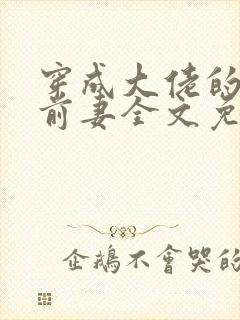 穿成大佬的
前妻全文免
企鵝不會哭的